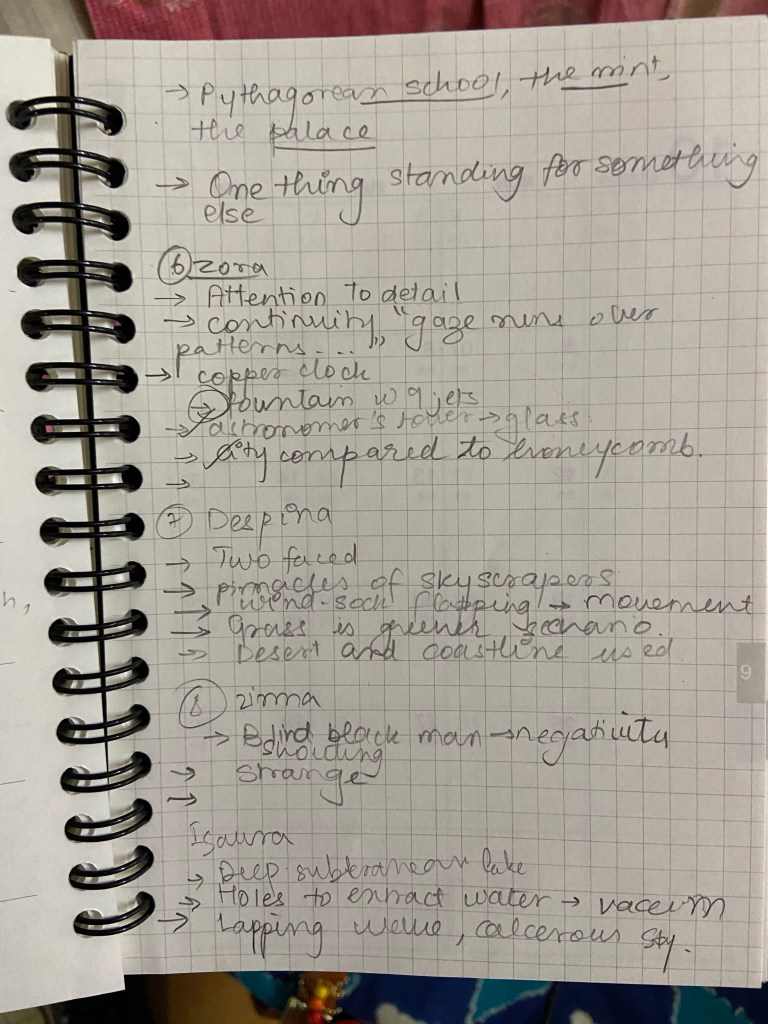 → Pythagorean school, the mint,
the palace
→ One thing standing for something
else
6 Zora
→ Attention to detail
→ continuity "gaze runs over
patterns...."
→ copper clock
→ fountain w 9 jets
→ astronomer's tower → glass
→ City compared to honeycomb.
→
7 Despina
→ Two faced
→ pinnacles of skyscrapers
→ wind-sock flapping → movement
→ Grass is greener
→ Desert and coastline used
8 Zirma
→ Blind black man → negativity
shouting
→ strange
→
Isaura
→ Deep subterranean lake
→ Holes to extract water →
→ Lapping wave, calcerous sky.
9
h,